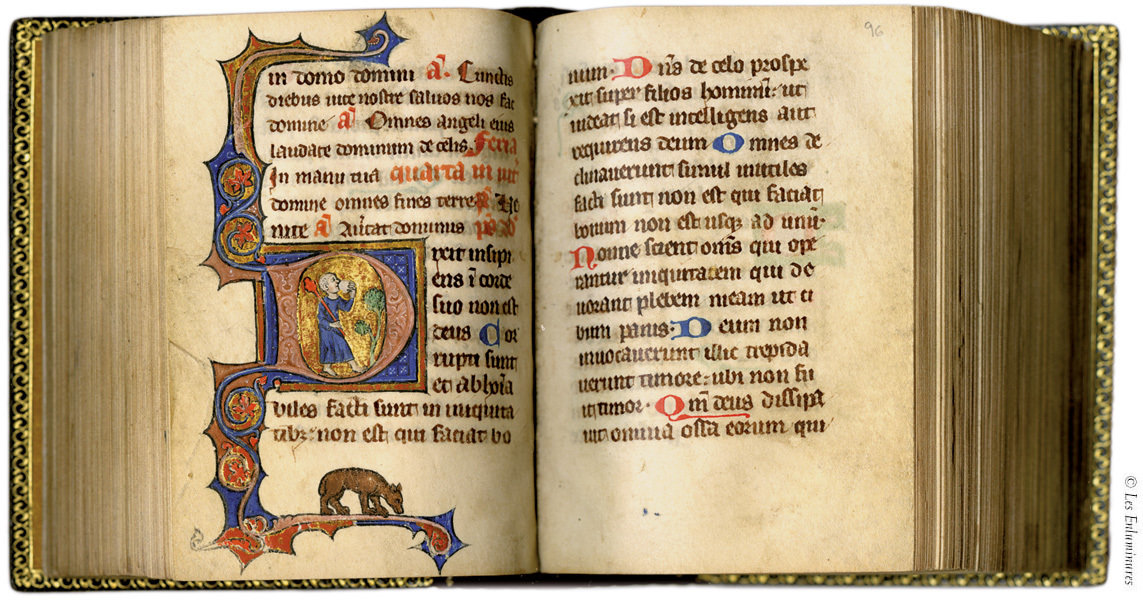 in domo domini A. Cunctis
diebus uite nostre saluos nos fac
domine A Omnes angeli eius
laudate dominum de celis. Feria
In manu tua quarta in uit
domine omnes fines terre ps Ve
nite A Auertat dominus ps D
Dixit insipi
ens i corde
suo non est
deus Cor
rupti sunt
et abhoia
biles facti sunt in iniquita
tibz: non est qui faciat bo
96
num. Dns de celo prospe
xit super filios hominu: ut
uideat si est intelligens aut
requirens deum Omnes de
clinauerunt simul inutiles
facti sunt non est qui faciat
bonum non est usqz ad unu.
Nonne scient oms qui ope
rantur iniquitatem qui de
uorant plebem meam ut ci
bum panis: Deum non
inuocauerunt illic trepida
uerunt timore: ubi non fu
it timor. Qm deus dissipa
uit omnia ossa eorum qui
© Les Enluminures